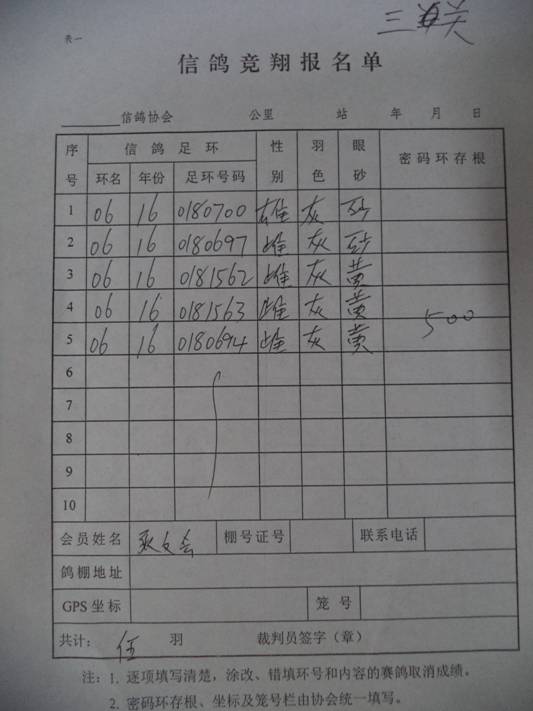 三关
表一
信鸽竞翔报名单
信鸽协会 公里 站 年 月 日
序号 信鸽足环 性别 羽色 眼砂 密码环存根
环名 年份 足环号码
1 06 16 0180700 雄 灰 砂
2 06 16 0180697 雌 灰 砂
3 06 16 0181562 雌 灰 黄
4 06 16 0181563 雌 灰 黄
500
5 06 16 0180694 雌 灰 黄
6
7
8
9
10
会员姓名 棚号证号 联系电话
鸽棚地址
GPS 坐标 笼号
共计： 伍 羽 裁判员签字（章）
注：1. 逐项填写清楚，涂改、错填环号和内容的赛鸽取消成绩。
2. 密码环存根、坐标及笼号栏由协会统一填写。